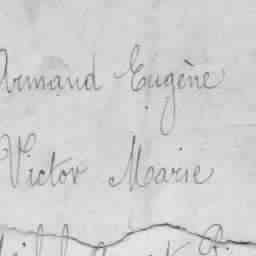 Armand Eugène
Victor Marie